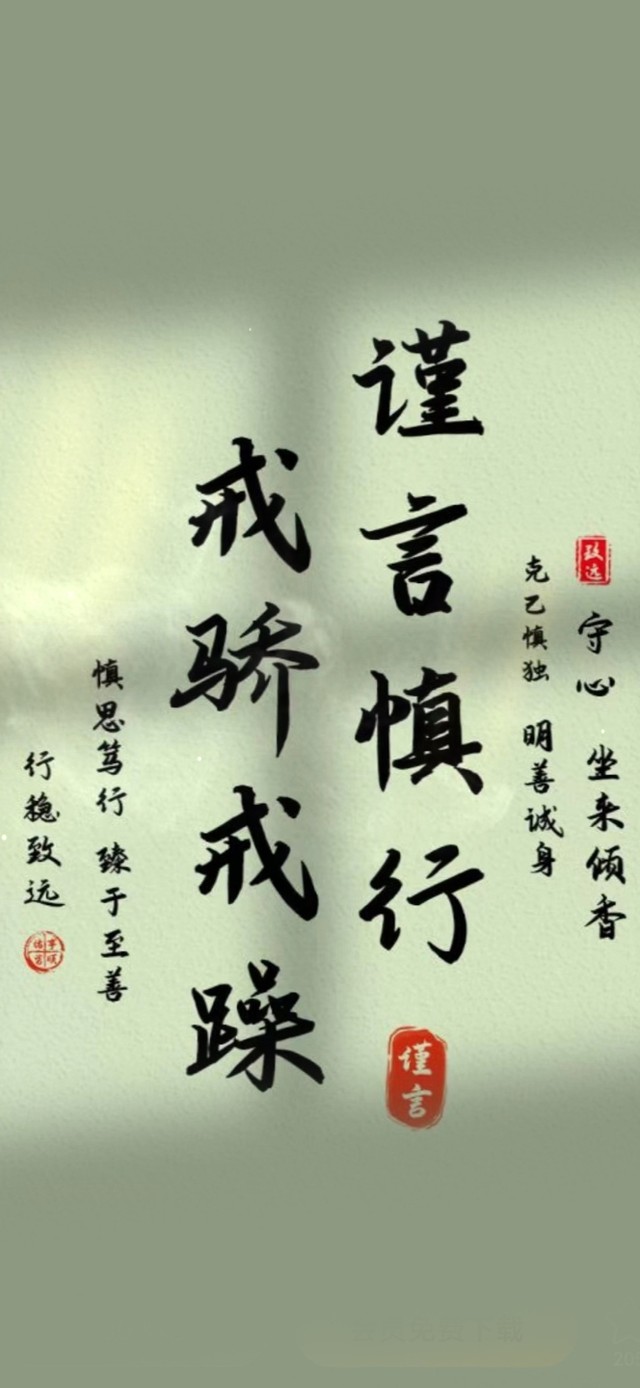 致远
守心 坐来倾香
克己慎独 明善诚身
谨言慎行
谨言
戒骄戒躁
慎思笃行 臻于至善
行稳致远